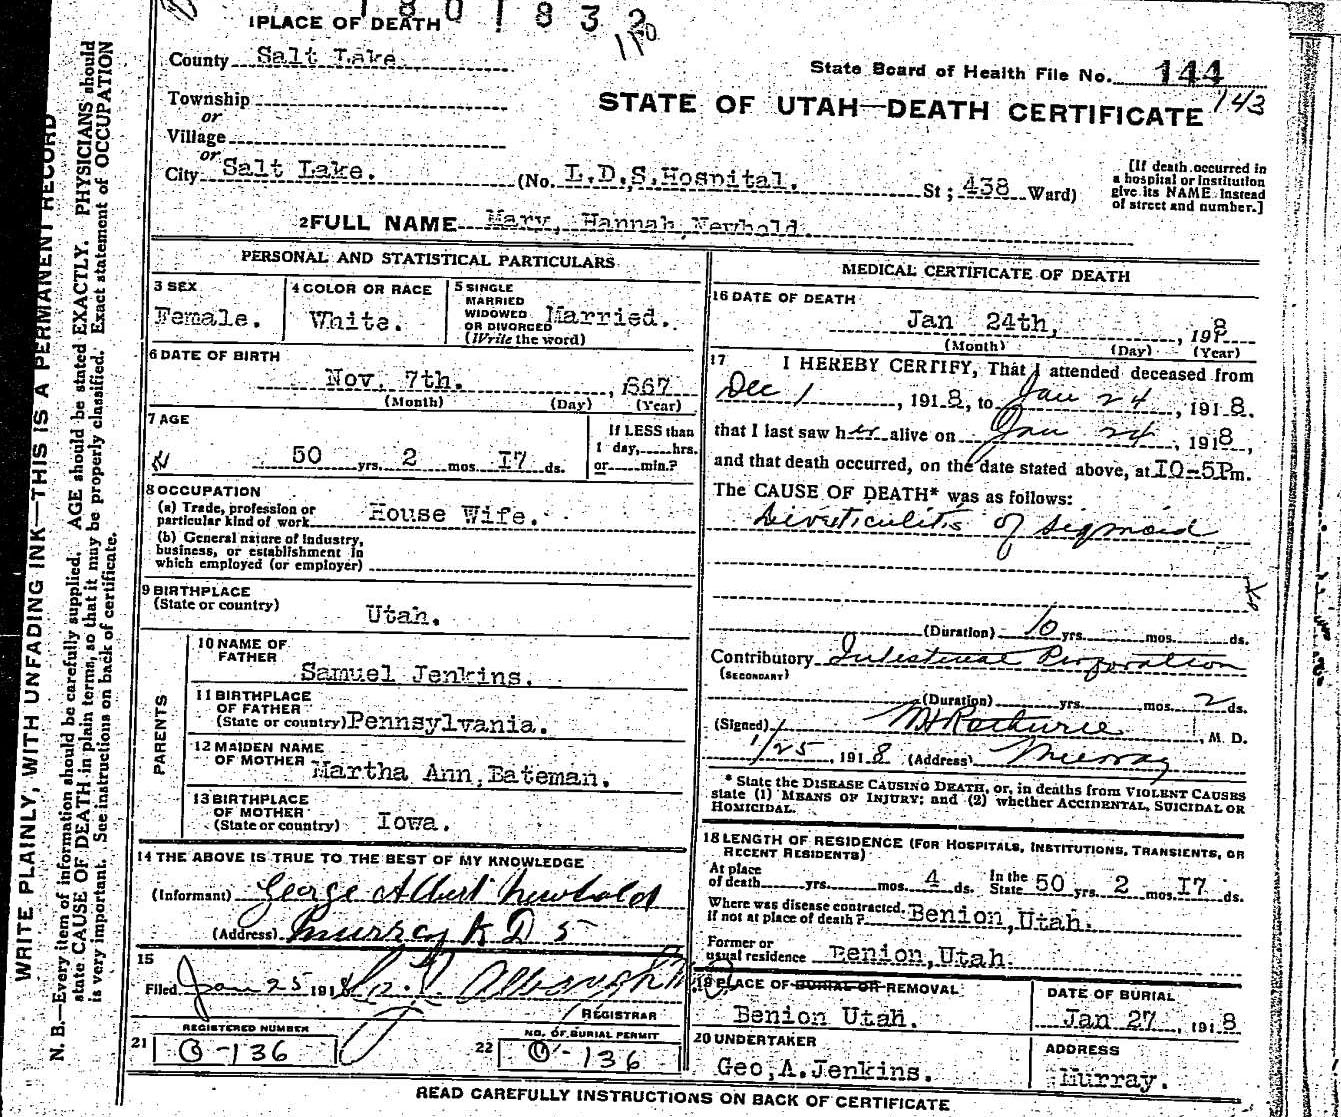 1801832
1PLACE OF DEATH
1170
County Salt Lake.
State Board of Health File No. 144
143
Township
or
Village
or
STATE OF UTAH—DEATH CERTIFICATE
City Salt Lake. (No. L.D.S. Hospital. St; 438 Ward)
[If death occurred in a hospital or institution give its NAME instead of street and number.]
2FULL NAME Mary, Hannah Newbold.
PERSONAL AND STATISTICAL PARTICULARS
3 SEX
Female.
4 COLOR OR RACE
White.
5 SINGLE
MARRIED
WIDOWED
OR DIVORCED
(Write the word)
Married.
6 DATE OF BIRTH
Nov. 7th. , 1867
(Month) (Day) (Year)
7 AGE
50 yrs. 2 mos. 17 ds.
If LESS than
1 day, hrs.
or min.?
8 OCCUPATION
(a) Trade, profession or
particular kind of work House Wife.
(b) General nature of Industry,
business, or establishment in
which employed (or employer)
9 BIRTHPLACE
(State or country)
Utah.
PARENTS
10 NAME OF
FATHER
Samuel Jenkins.
11 BIRTHPLACE
OF FATHER
(State or country) Pennsylvania.
12 MAIDEN NAME
OF MOTHER Martha Ann, Bateman.
13 BIRTHPLACE
OF MOTHER
(State or country) Iowa.
14 THE ABOVE IS TRUE TO THE BEST OF MY KNOWLEDGE
(Informant) George Albert Newbold
(Address) Murray R D 5
15
Filed Jan 25 1918
REGISTRAR
REGISTERED NUMBER
21 O-136
NO. OF BURIAL PERMIT
22 O-136
MEDICAL CERTIFICATE OF DEATH
16 DATE OF DEATH
Jan 24th, , 1918
(Month) (Day) (Year)
17 I HEREBY CERTIFY, That I attended deceased from
Dec 1 , 1918, to Jan 24 , 1918.
that I last saw her alive on Jan 24 , 1918,
and that death occurred, on the date stated above, at 10-5Pm.
The CAUSE OF DEATH* was as follows:
Diverticulitis of sigmoid
(Duration) 10 yrs. mos. ds.
Contributory Intestinal Perforation
(SECONDARY)
(Duration) yrs. mos. 2 ds.
(Signed) , M. D.
1/25 , 1918 (Address) Murray
* State the DISEASE CAUSING DEATH, or, in deaths from VIOLENT CAUSES
state (1) MEANS OF INJURY; and (2) whether ACCIDENTAL, SUICIDAL OR
HOMICIDAL.
18 LENGTH OF RESIDENCE (FOR HOSPITALS, INSTITUTIONS, TRANSIENTS, OR
RECENT RESIDENTS)
At place
of death yrs. mos. 4 ds. In the State 50 yrs. 2 mos. 17 ds.
Where was disease contracted,
if not at place of death? Benion, Utah.
Former or
usual residence Benion, Utah.
19 PLACE OF BURIAL OR REMOVAL
Benion Utah.
DATE OF BURIAL
Jan 27 , 1918
20 UNDERTAKER
Geo, A. Jenkins.
ADDRESS
Murray.
READ CAREFULLY INSTRUCTIONS ON BACK OF CERTIFICATE
WRITE PLAINLY, WITH UNFADING INK—THIS IS A PERMANENT RECORD
N. B.—Every item of information should be carefully supplied. AGE should be stated EXACTLY. PHYSICIANS should
state CAUSE OF DEATH in plain terms, so that it may be properly classified. Exact statement of OCCUPATION
is very important. See instructions on back of certificate.